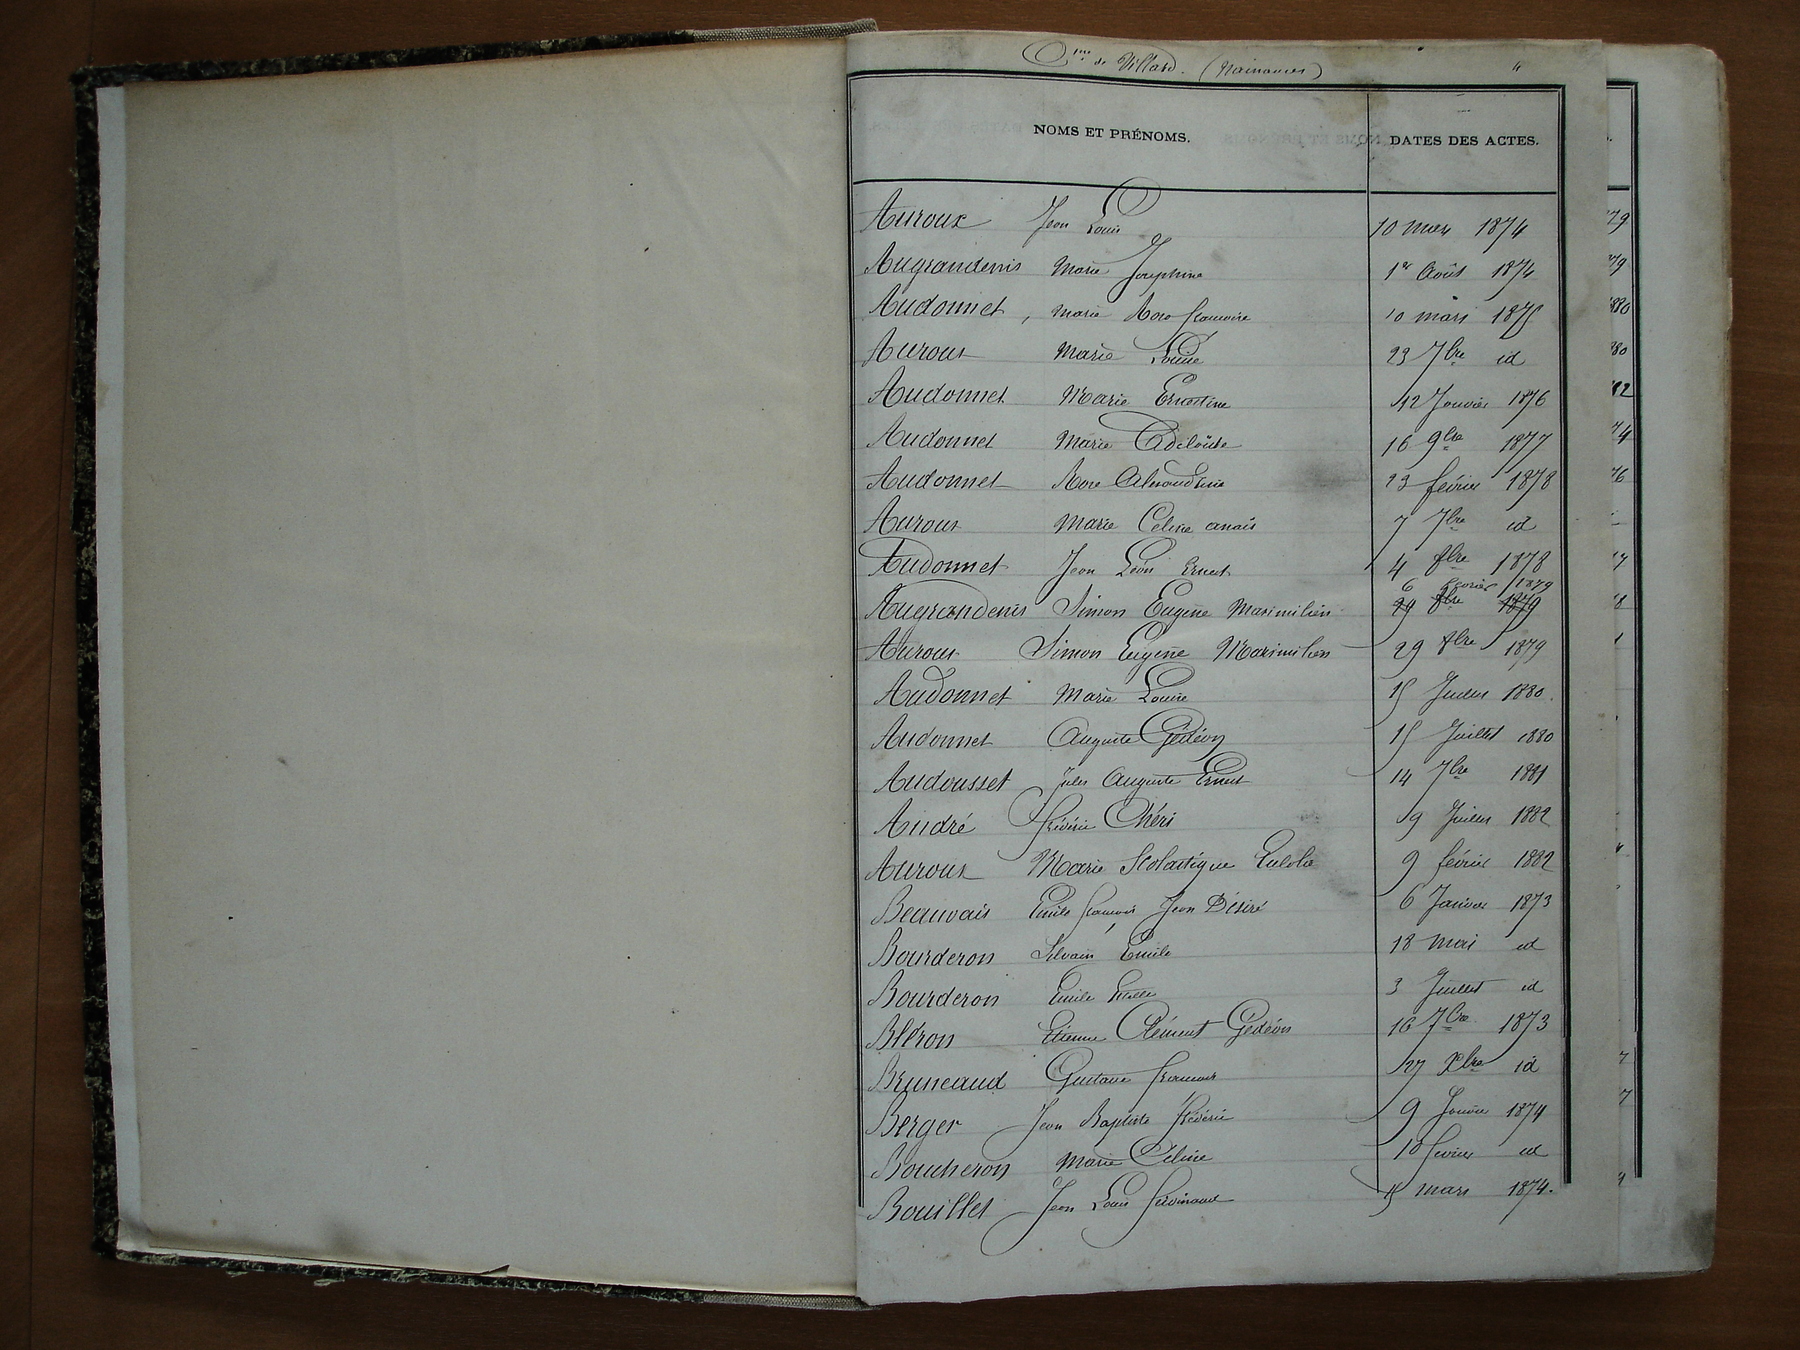 Cne de Villard. (Naissances)
NOMS ET PRÉNOMS. DATES DES ACTES.
Auroux Jean Louis 10 mars 1874
Augrandenis Marie Joséphine 1er Août 1874
Audonnet, Marie Rose françoise 10 mars 1875
Auroux Marie Louise 23 7bre id
Audonnet Marie Ernestine 12 Janvier 1876
Audonnet Marie Adelaïde 16 9bre 1877
Audonnet Rose Alexandrine 23 février 1878
Auroux Marie Celine anaïs 7 7bre id
Audonnet Jean Léon Ernest 4 8bre 1878
6 février 1879
Augrandenis Simon Eugène Maximilien 29 8bre 1879
Auroux Simon Eugène Maximilien 29 8bre 1879
Audonnet Marie Louise 15 Juillet 1880.
Audonnet Auguste Gédéon 15 Juillet 1880
Audousset Jules Auguste Ernest 14 7bre 1881
André frédéric Chéri 9 1882
Auroux Marie Scolastique 9 février 1882
Beauvais Emile françois Jean Désiré 6 Janvier 1873
Bourderon Silvain Emile 18 mai id
Bourderon Emile 3 Juillet id
Bléron Etienne Clément Gédéon 16 7bre 1873
Bruneaud Gustave françois 27 Xbre id
Berger Jean Baptiste frédéric 9 Janvier 1874
Boucheron Marie Céline 18 fevrier id
Bouillet Jean Louis ferdinand mars 1874.